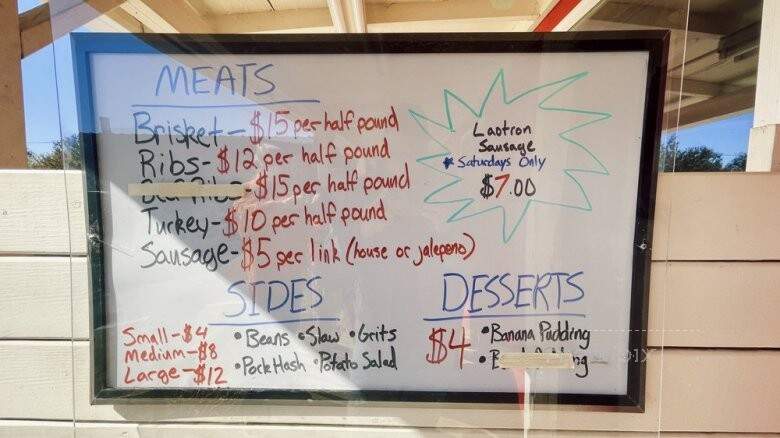 MEATS
Brisket - $15 per half pound
Ribs - $12 per half pound
- $15 per half pound
Turkey - $10 per half pound
Sausage - $5 per link (house or jalepeno)
Laotron
Sausage
* Saturdays Only
$7.00
SIDES
Small - $4
Medium - $8
Large - $12
• Beans • Slaw • Grits
• Pork Hash • Potato Salad
DESSERTS
$4
• Banana Pudding